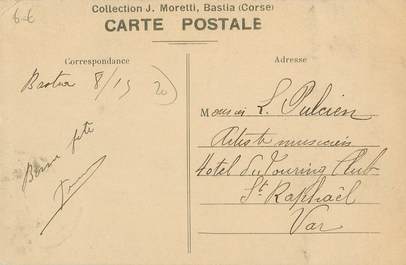 6-6
Collection J. Moretti, Bastia (Corse)
CARTE POSTALE
Correspondance
Adresse
Bastia 8/15
20
Bonne fête
Monsieur L. Pulcien
Artiste musicien
Hotel du Touring Club
St Raphaël
Var